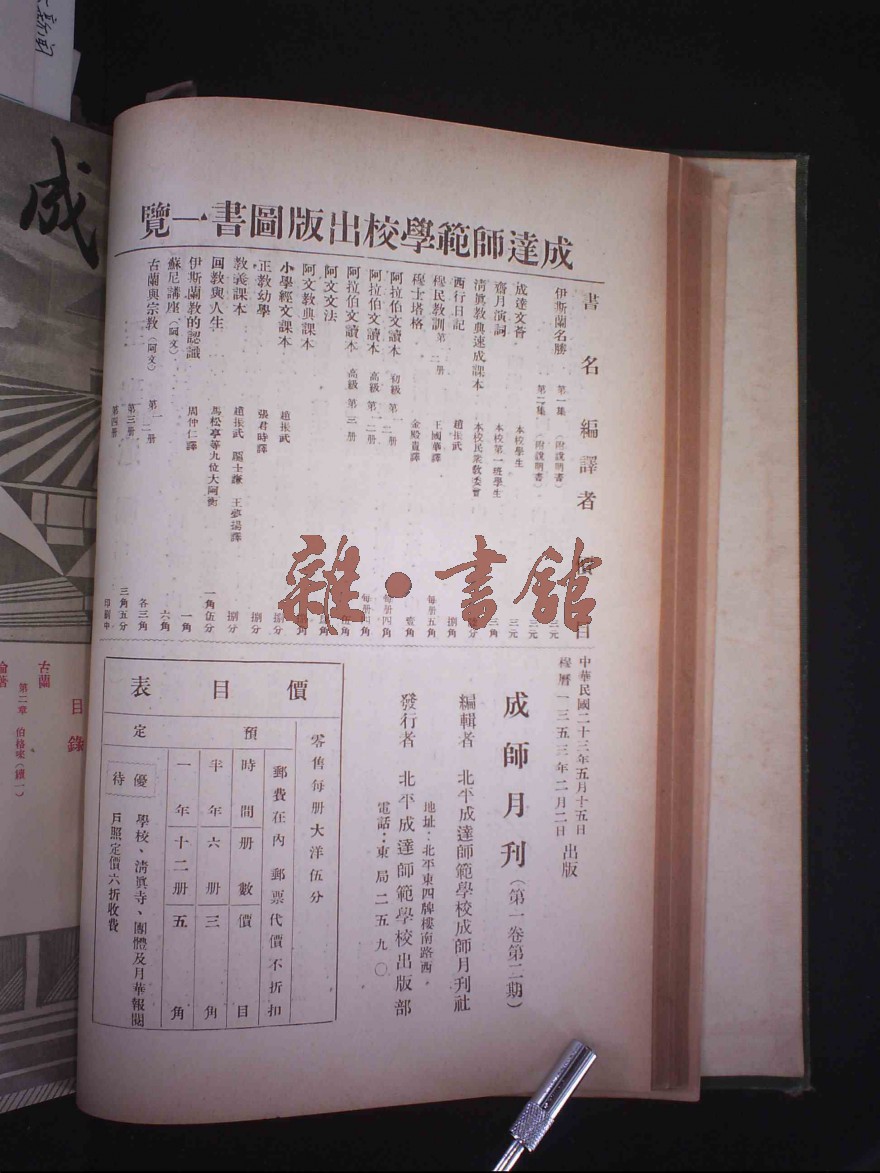 成達師範學校出版圖書一覽
書名 編譯者 價目
伊斯蘭名勝 第一集（附說明書） 三元
第二集（附說明書） 三元
成達文薈 本校學生 三元
齋月演詞 本校第一班學生 三角
清眞教典速成課本 本校民衆教委會
西行日記 趙振武 捌角
穆民教訓 第一二册 王國華譯 每册五角
穆士塔格 金殿貴譯 壹角
阿拉伯文讀本 初級 第一二册 每册四角
阿拉伯文讀本 高級 第一二册 每册四角
阿拉伯文讀本 高級 第三册 伍角
阿文文法
阿文教典課本
小學經文課本 趙振武 捌分
正教幼學 張君時譯 捌分
教義課本 趙振武 馬士謙 王夢揚譯 捌分
回教與人生 馬松亭等九位大阿衡 一角伍分
伊斯蘭教的認識 周仲仁譯 一角
蘇尼講座（阿文） 六角
古蘭與宗教（阿文） 第一二册 各三角
第三册 三角五分
第四册 印刷中
中華民國二十三年五月十五日
穆曆一三五三年二月二日 出版
成師月刊（第一卷第二期）
編輯者 北平成達師範學校成師月刊社
地址：北平東四牌樓南路西
發行者 北平成達師範學校出版部
電話：東局二五九〇
價目表
零售每册大洋伍分
預定
郵費在內 郵票代價不折扣
時間 册數 價目
半年 六册 三角
一年 十二册 五角
優待
學校、清眞寺、團體及月華報閱
戶照定價六折收費
雜·書館
成
目錄
古蘭
第二章 伯格來（續一）